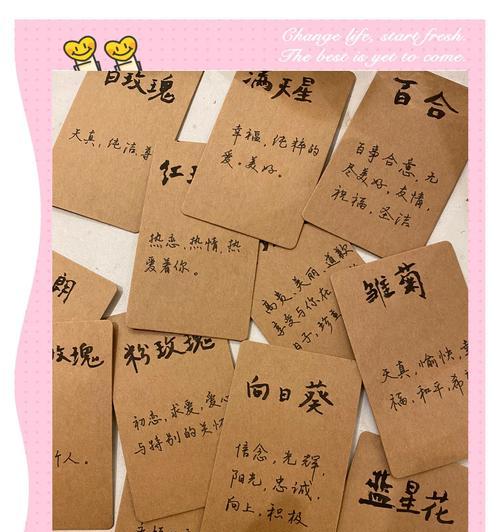 Change life, start fresh.
The best is yet to come.
白玫瑰
天真，纯洁，尊
满天星
幸福，纯粹的
爱。美好。
百合
百事合意，无
尽美好，友情，
祝福，圣洁
红
热恋，热情，热
爱着你。
高贵，美丽，道歉
享受与你在
日子，珍重
雏菊
天真，愉快，幸
福，和平，希
朗
玫瑰
人。
粉玫瑰
初恋，求爱，爱心
与特别的关怀
向日葵
信念，光辉，
阳光，忠诚，
向上，积极
蓝星花